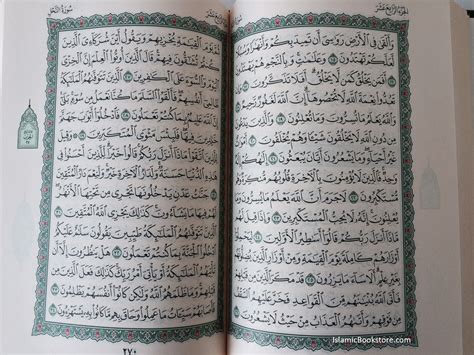 الجزء الرابع عشر
وَأَلْقَىٰ فِي الْأَرْضِ رَوَاسِيَ أَن تَمِيدَ بِكُمْ وَأَنْهَارًا وَسُبُلًا
لَّعَلَّكُمْ تَهْتَدُونَ ١٥ وَعَلَامَاتٍ وَبِالنَّجْمِ هُمْ يَهْتَدُونَ ١٦
أَفَمَن يَخْلُقُ كَمَن لَّا يَخْلُقُ أَفَلَا تَذَكَّرُونَ ١٧ وَإِن
تَعُدُّوا نِعْمَةَ اللَّهِ لَا تُحْصُوهَا إِنَّ اللَّهَ لَغَفُورٌ رَّحِيمٌ ١٨
وَاللَّهُ يَعْلَمُ مَا تُسِرُّونَ وَمَا تُعْلِنُونَ ١٩ وَالَّذِينَ يَدْعُونَ
مِن دُونِ اللَّهِ لَا يَخْلُقُونَ شَيْئًا وَهُمْ يُخْلَقُونَ ٢٠ أَمْوَاتٌ
غَيْرُ أَحْيَاءٍ وَمَا يَشْعُرُونَ أَيَّانَ يُبْعَثُونَ ٢١ إِلَٰهُكُمْ إِلَٰهٌ
وَاحِدٌ فَالَّذِينَ لَا يُؤْمِنُونَ بِالْآخِرَةِ قُلُوبُهُم مُّنكِرَةٌ وَهُم
مُّسْتَكْبِرُونَ ٢٢ لَا جَرَمَ أَنَّ اللَّهَ يَعْلَمُ مَا يُسِرُّونَ وَمَا
يُعْلِنُونَ إِنَّهُ لَا يُحِبُّ الْمُسْتَكْبِرِينَ ٢٣ وَإِذَا قِيلَ لَهُم
مَّاذَا أَنزَلَ رَبُّكُمْ قَالُوا أَسَاطِيرُ الْأَوَّلِينَ ٢٤
لِيَحْمِلُوا أَوْزَارَهُمْ كَامِلَةً يَوْمَ الْقِيَامَةِ وَمِنْ أَوْزَارِ الَّذِينَ يُضِلُّونَهُم
بِغَيْرِ عِلْمٍ أَلَا سَاءَ مَا يَزِرُونَ ٢٥ قَدْ مَكَرَ الَّذِينَ
مِن قَبْلِهِمْ فَأَتَى اللَّهُ بُنْيَانَهُم مِّنَ الْقَوَاعِدِ فَخَرَّ عَلَيْهِمُ السَّقْفُ
مِن فَوْقِهِمْ وَأَتَاهُمُ الْعَذَابُ مِنْ حَيْثُ لَا يَشْعُرُونَ ٢٦
سورة النحل
ثُمَّ يَوْمَ الْقِيَامَةِ يُخْزِيهِمْ وَيَقُولُ أَيْنَ شُرَكَائِيَ الَّذِينَ
كُنتُمْ تُشَاقُّونَ فِيهِمْ قَالَ الَّذِينَ أُوتُوا الْعِلْمَ إِنَّ الْخِزْيَ
الْيَوْمَ وَالسُّوءَ عَلَى الْكَافِرِينَ ٢٧ الَّذِينَ تَتَوَفَّاهُمُ الْمَلَائِكَةُ
ظَالِمِي أَنفُسِهِمْ فَأَلْقَوُا السَّلَمَ مَا كُنَّا نَعْمَلُ مِن سُوءٍ بَلَىٰ
إِنَّ اللَّهَ عَلِيمٌ بِمَا كُنتُمْ تَعْمَلُونَ ٢٨ فَادْخُلُوا أَبْوَابَ
جَهَنَّمَ خَالِدِينَ فِيهَا فَلَبِئْسَ مَثْوَى الْمُتَكَبِّرِينَ ٢٩
وَقِيلَ لِلَّذِينَ اتَّقَوْا مَاذَا أَنزَلَ رَبُّكُمْ قَالُوا خَيْرًا لِّلَّذِينَ أَحْسَنُوا فِي
هَٰذِهِ الدُّنْيَا حَسَنَةٌ وَلَدَارُ الْآخِرَةِ خَيْرٌ وَلَنِعْمَ دَارُ الْمُتَّقِينَ
٣٠ جَنَّاتُ عَدْنٍ يَدْخُلُونَهَا تَجْرِي مِن تَحْتِهَا الْأَنْهَارُ
لَهُمْ فِيهَا مَا يَشَاءُونَ كَذَٰلِكَ يَجْزِي اللَّهُ الْمُتَّقِينَ ٣١
الَّذِينَ تَتَوَفَّاهُمُ الْمَلَائِكَةُ طَيِّبِينَ يَقُولُونَ سَلَامٌ عَلَيْكُمُ
ادْخُلُوا الْجَنَّةَ بِمَا كُنتُمْ تَعْمَلُونَ ٣٢ هَلْ يَنظُرُونَ إِلَّا
أَن تَأْتِيَهُمُ الْمَلَائِكَةُ أَوْ يَأْتِيَ أَمْرُ رَبِّكَ كَذَٰلِكَ فَعَلَ الَّذِينَ
مِن قَبْلِهِمْ وَمَا ظَلَمَهُمُ اللَّهُ وَلَٰكِن كَانُوا أَنفُسَهُمْ يَظْلِمُونَ
٣٣ فَأَصَابَهُمْ سَيِّئَاتُ مَا عَمِلُوا وَحَاقَ بِهِم مَّا كَانُوا بِهِ يَسْتَهْزِئُونَ ٣٤
٢٧٠
IslamicBookstore.com